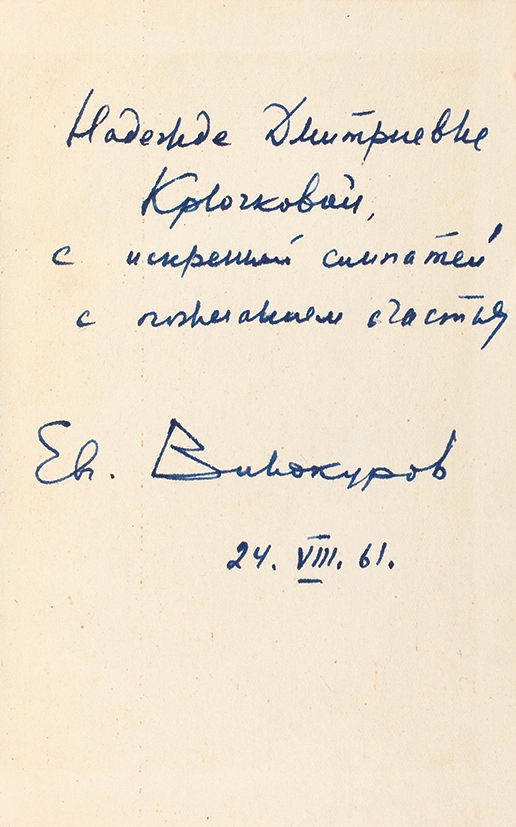 Надежде Дмитриевне
Крючковой,
с искренней симпатией
с пожеланием счастья
Евг. Винокуров
24. VIII. 61.